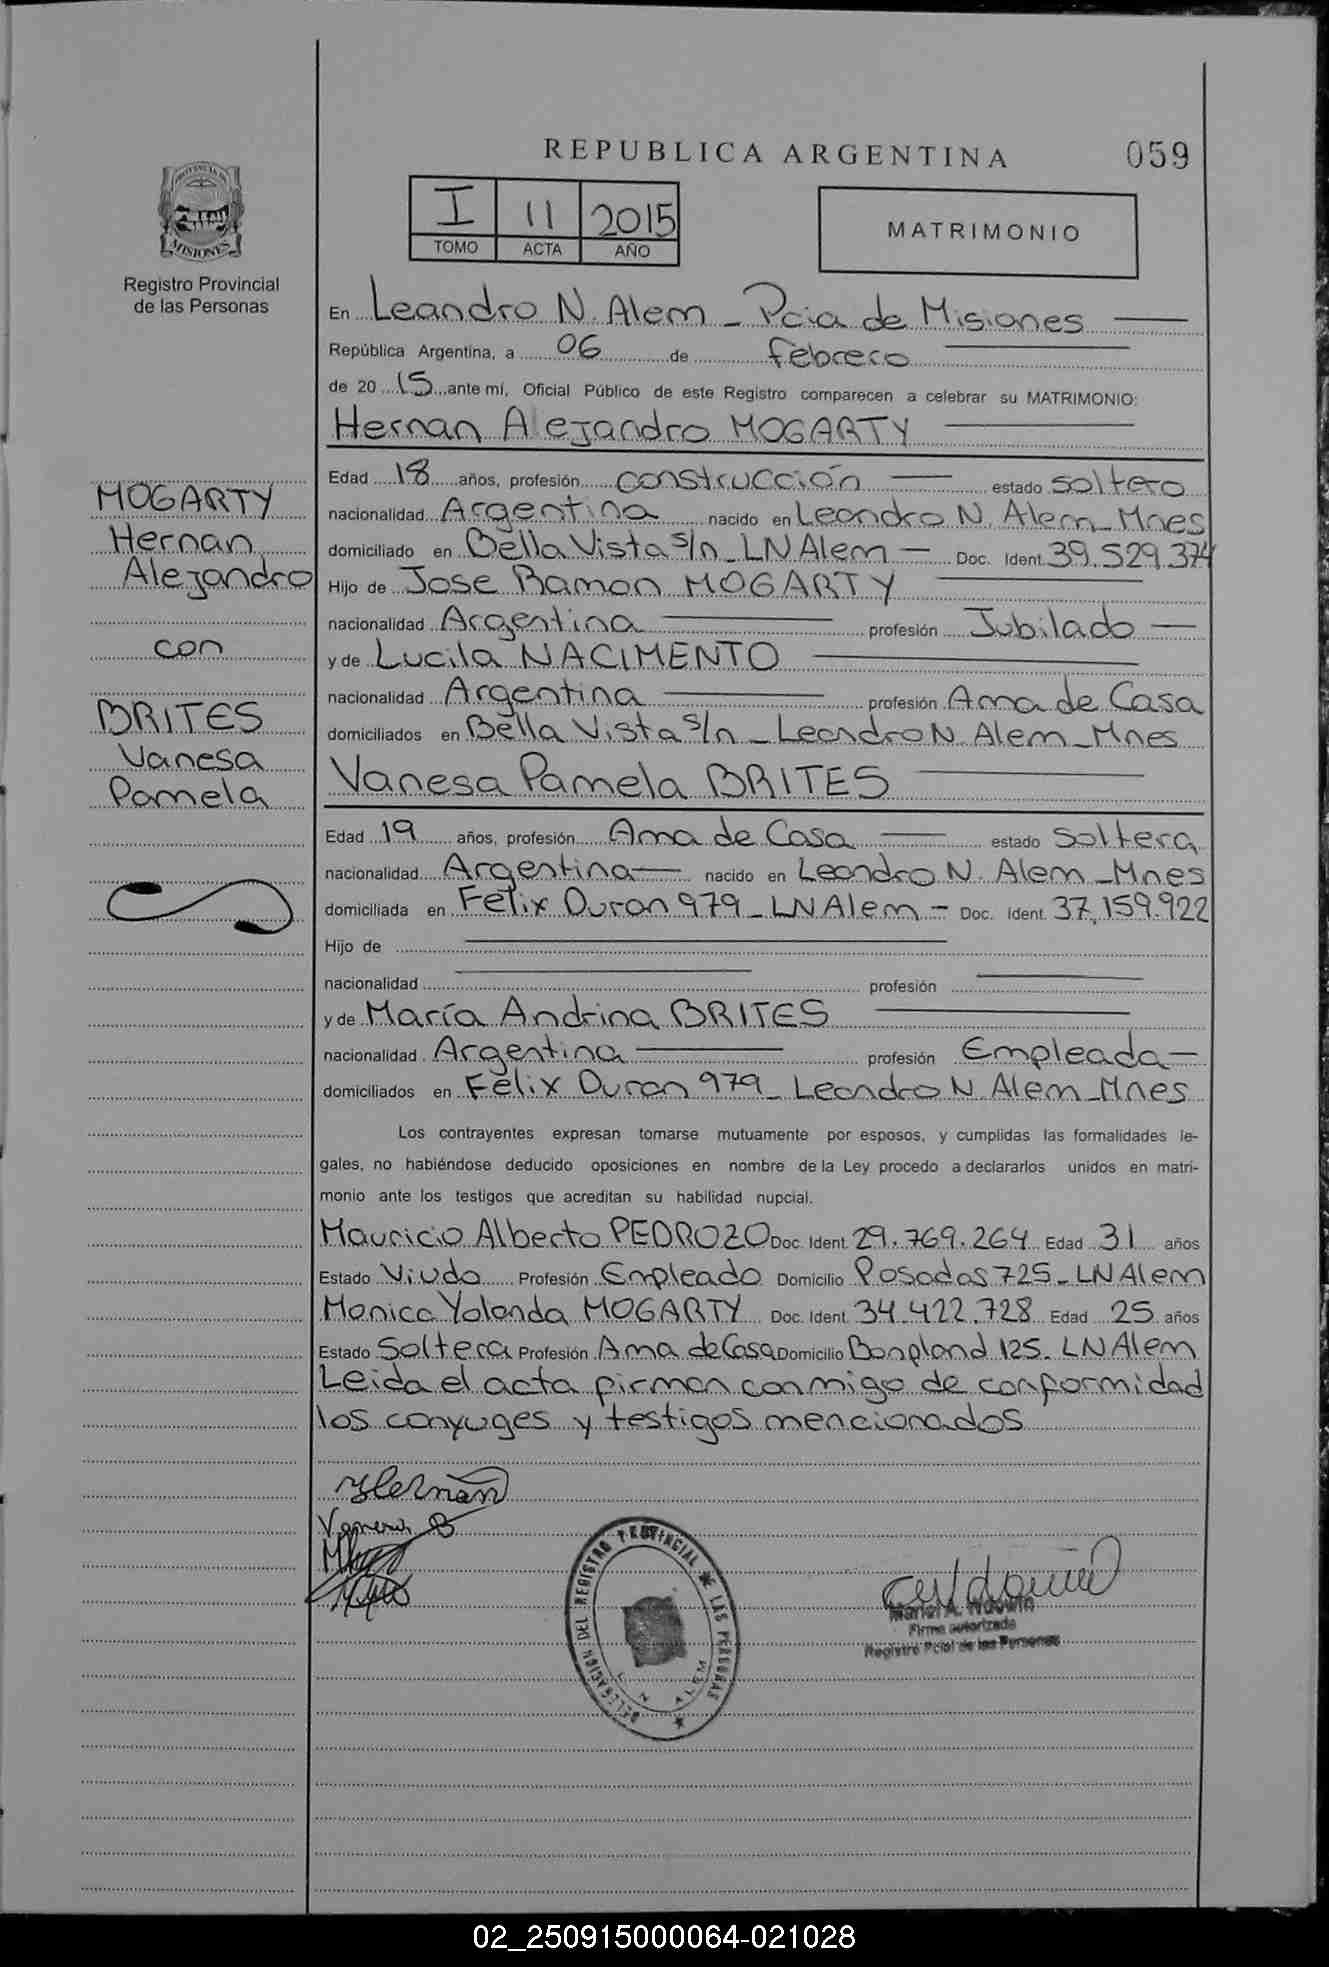 REPUBLICA ARGENTINA 059
I 11 2015
TOMO ACTA AÑO
MATRIMONIO
PROVINCIA DE MISIONES
Registro Provincial
de las Personas
MOGARTY
Hernan
Alejandro
con
BRITES
Vanesa
Pamela
En Leandro N. Alem - Pcia de Misiones
República Argentina, a 06 de febrero
de 20 15 ante mí, Oficial Público de este Registro comparecen a celebrar su MATRIMONIO:
Hernan Alejandro MOGARTY
Edad 18 años, profesión construcción estado soltero
nacionalidad Argentina nacido en Leandro N. Alem - Mnes
domiciliado en Bella Vista s/n - LN Alem - Doc. Ident. 39.529.374
Hijo de Jose Ramon MOGARTY
nacionalidad Argentina profesión Jubilado
y de Lucila NACIMENTO
nacionalidad Argentina profesión Ama de Casa
domiciliados en Bella Vista s/n - Leandro N. Alem - Mnes
Vanesa Pamela BRITES
Edad 19 años, profesión Ama de Casa estado Soltera
nacionalidad Argentina nacido en Leandro N. Alem - Mnes
domiciliada en Felix Duran 979 - LN Alem - Doc. Ident. 37.159.922
Hijo de
nacionalidad profesión
y de María Andrina BRITES
nacionalidad Argentina profesión Empleada
domiciliados en Felix Duran 979 - Leandro N. Alem - Mnes
Los contrayentes expresan tomarse mutuamente por esposos, y cumplidas las formalidades le-
gales, no habiéndose deducido oposiciones en nombre de la Ley procedo a declararlos unidos en matri-
monio ante los testigos que acreditan su habilidad nupcial.
Mauricio Alberto PEDROZO Doc. Ident. 29.769.264 Edad 31 años
Estado Viudo Profesión Empleado Domicilio Posadas 725 - LN Alem
Monica Yolanda MOGARTY Doc. Ident. 34.422.728 Edad 25 años
Estado Soltera Profesión Ama de Casa Domicilio Bonpland 125 - LN Alem
Leida el acta firman conmigo de conformidad
los conyuges y testigos mencionados
Hernán
Vanesa B
DELEGACION DEL REGISTRO PROVINCIAL DE LAS PERSONAS
L N ALEM
Mariel A.
Firma autorizada
Registro Pcial de las Personas
02_250915000064-021028